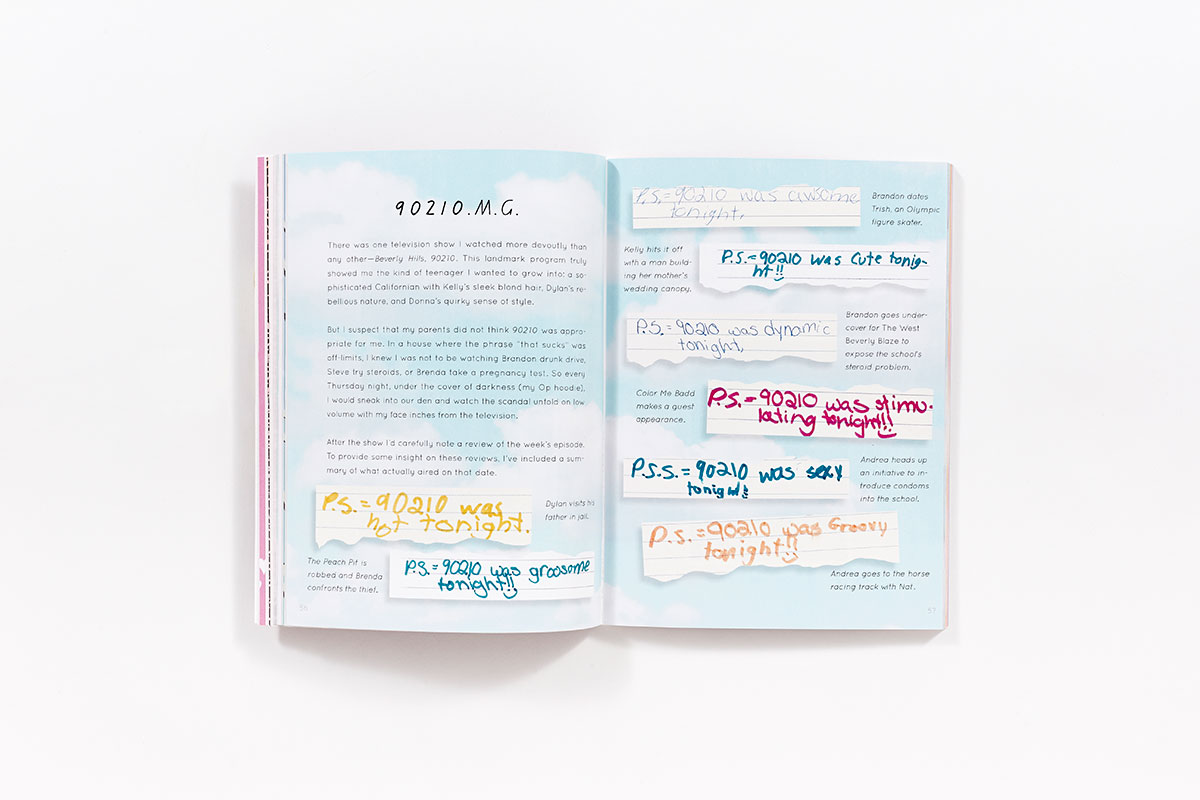 90210.M.G.
There was one television show I watched more devoutly than
any other—Beverly Hills, 90210. This landmark program truly
showed me the kind of teenager I wanted to grow into: a so-
phisticated Californian with Kelly's sleek blond hair, Dylan's re-
bellious nature, and Donna's quirky sense of style.
But I suspect that my parents did not think 90210 was appro-
priate for me. In a house where the phrase "that sucks" was
off-limits, I knew I was not to be watching Brandon drunk drive,
Steve try steroids, or Brenda take a pregnancy test. So every
Thursday night, under the cover of darkness (my Op hoodie),
I would sneak into our den and watch the scandal unfold on low
volume with my face inches from the television.
After the show I'd carefully note a review of the week's episode.
To provide some insight on these reviews, I've included a sum-
mary of what actually aired on that date.
P.S.=90210 was
hot tonight.
Dylan visits his
father in jail.
The Peach Pit is
robbed and Brenda
confronts the thief.
P.S.=90210 was groosome
tonight!!
56
P.S.=90210 was awsome
tonight.
Brandon dates
Trish, an Olympic
figure skater.
Kelly hits it off
with a man build-
ing her mother's
wedding canopy.
P.S.=90210 was cute tonig-
ht!!
P.S.=90210 was dynamic
tonight.
Brandon goes under-
cover for The West
Beverly Blaze to
expose the school's
steroid problem.
Color Me Badd
makes a guest
appearance.
P.S.=90210 was stimu-
lating tonight!!
P.S.S.=90210 was sexy
tonight!!
Andrea heads up
an initiative to in-
troduce condoms
into the school.
P.S.=90210 was Groovy
tonight!!
Andrea goes to the horse
racing track with Nat.
57